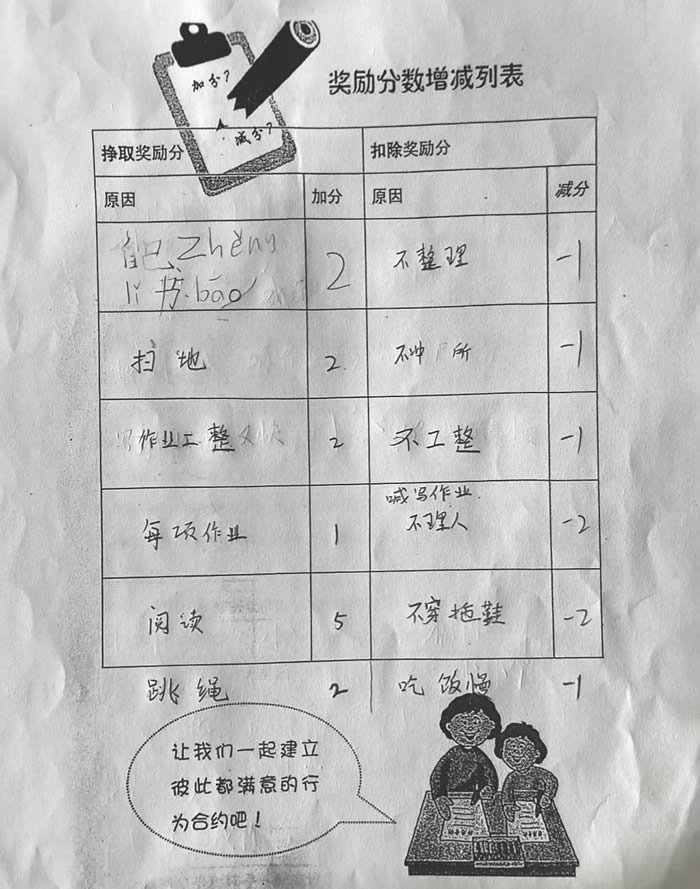 加分？
减分？
奖励分数增减列表
挣取奖励分 扣除奖励分
原因 加分 原因 减分
自己 zhěng
lǐ 书 bāo 2 不整理 -1
扫地 2 不冲 所 -1
写作业工整 2 不工整 -1
每项作业 1 喊写作业
不理人 -2
阅读 5 不穿拖鞋 -2
跳绳 2 吃饭慢 -1
让我们一起建立
彼此都满意的行
为合约吧！